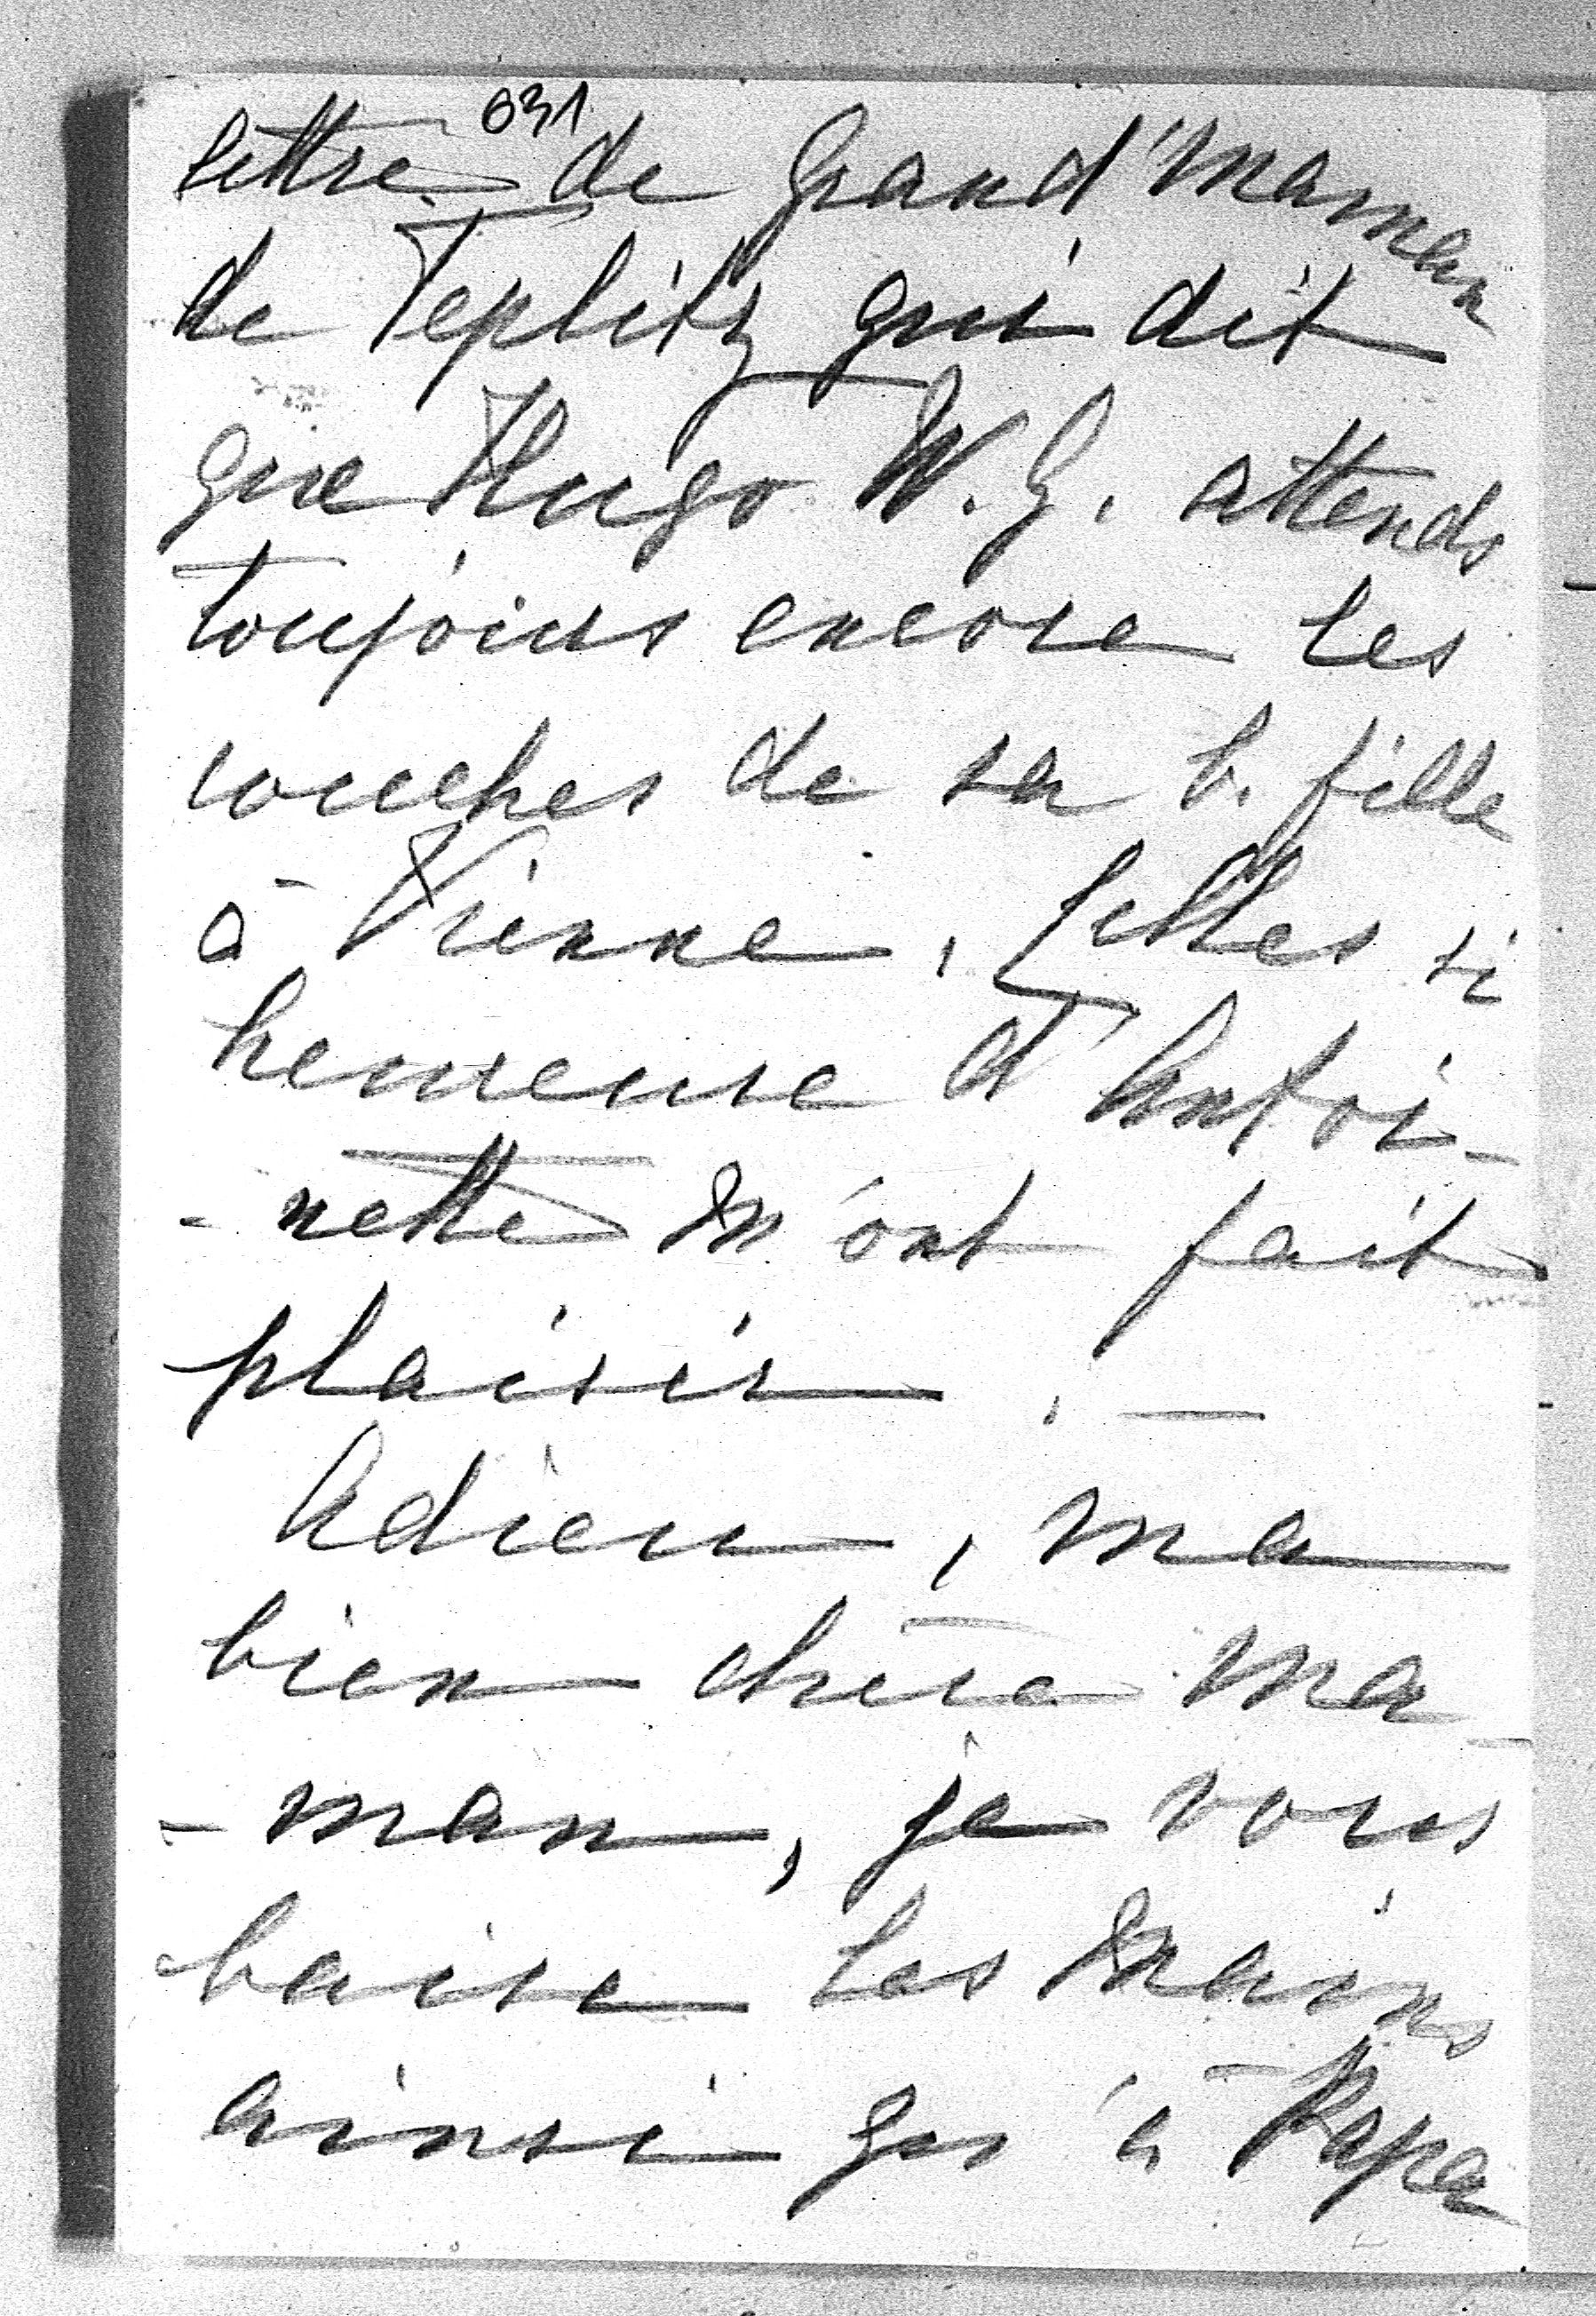 031
lettre de Grand'maman
de Teplitz qui dit
que Hugo W. G. attends
toujours encore les
couches de sa b. fille
à Vienne. Celles si
heureuse d'Antoi-
-nette m'ont fait
plaisir. —
Adieu, ma
bien chère ma-
-man, je vous
baise les mains
ainsi qu'à Papa